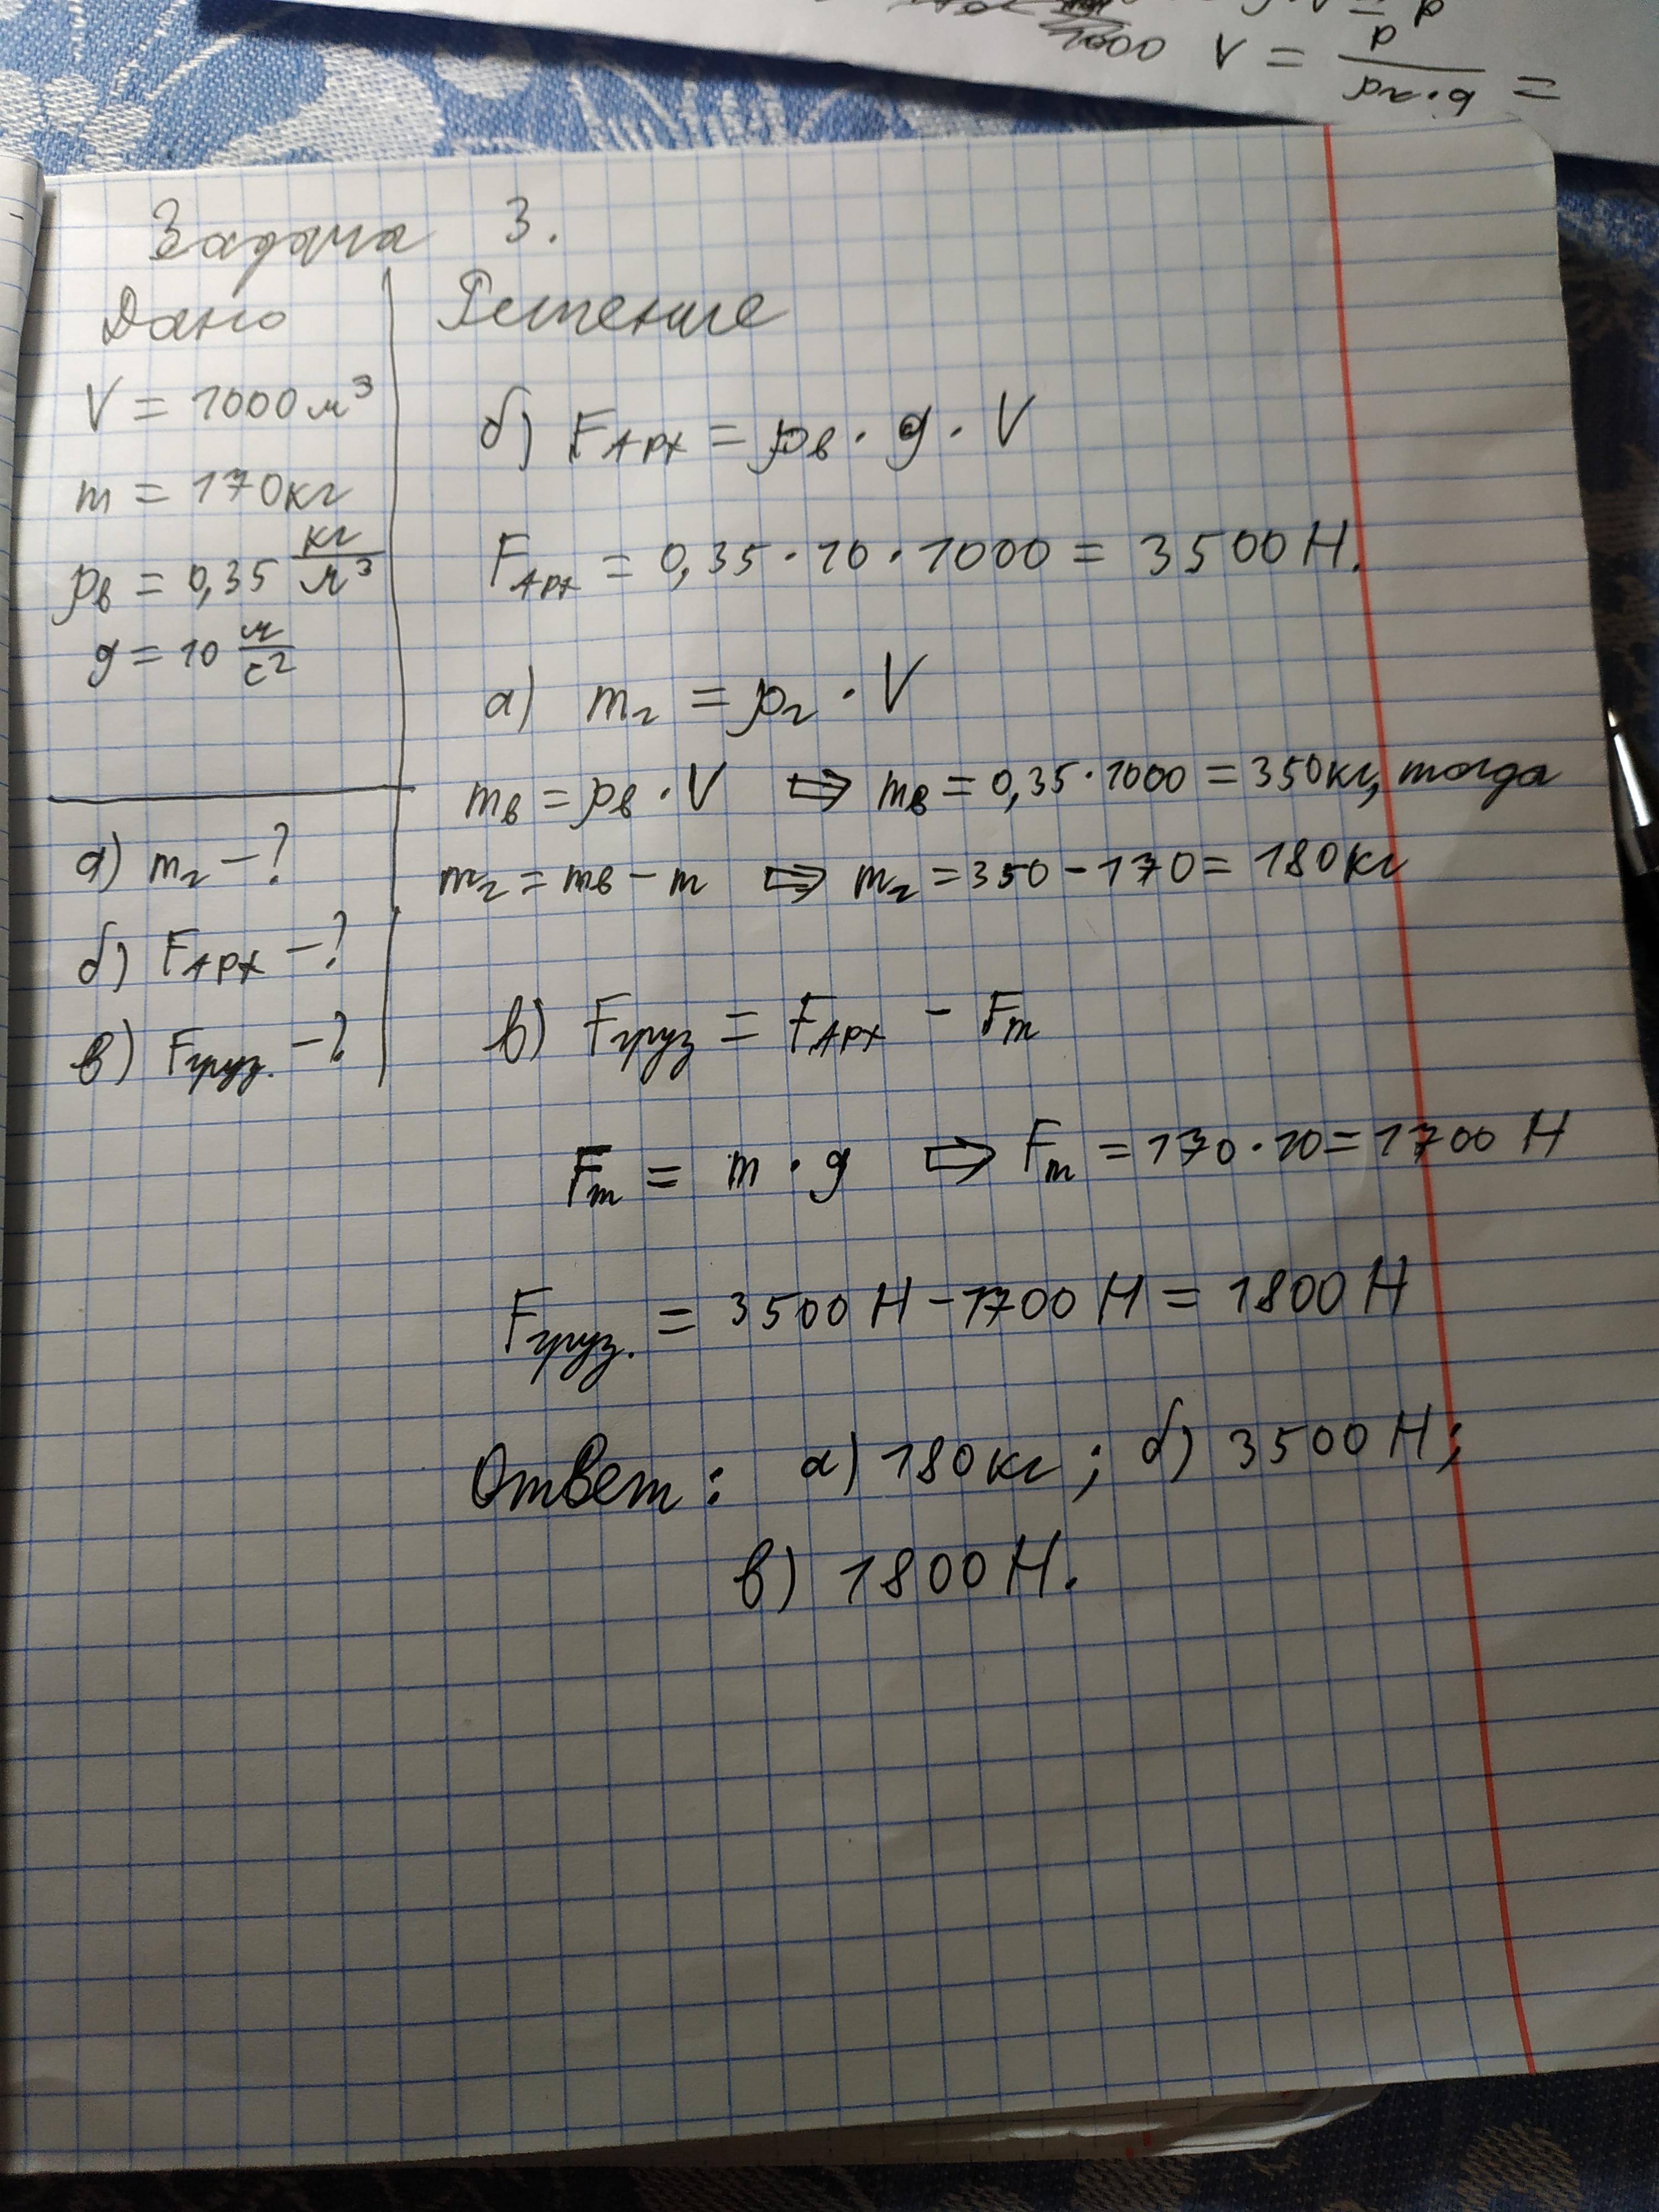 1000 V = P / ρг·g =
Задача 3.
Дано
V = 1000 м³
m = 170кг
ρв = 0,35 кг/м³
g = 10 м/с²
а) mг – ?
б) FАрх – ?
в) Fгруз. – ?
Решение
б) FАрх = ρв · g · V
FАрх = 0,35 · 10 · 1000 = 3500 Н.
а) mг = ρг · V
mв = ρв · V ⇒ mв = 0,35 · 1000 = 350кг, тогда
mг = mв – m ⇒ mг = 350 – 170 = 180кг
в) Fгруз = FАрх – Fт
Fт = m · g ⇒ Fт = 170 · 10 = 1700 Н
Fгруз. = 3500 Н – 1700 Н = 1800 Н
Ответ: а) 180кг ; б) 3500 Н;
в) 1800 Н.